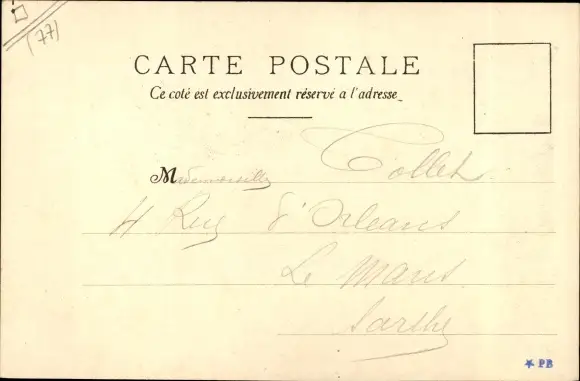 (77)
CARTE POSTALE
Ce coté est exclusivement réservé a l'adresse
Mademoiselle Collet
4 Rue d'Orleans
Le Mans
Sarthe
* PB